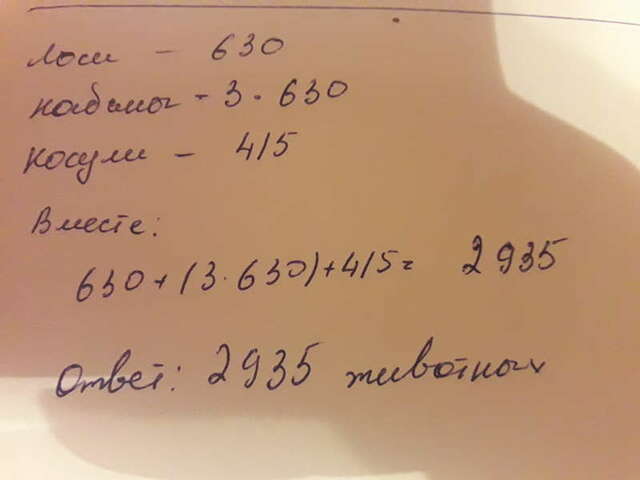 Лоси - 630
Кабаны - 3 · 630
Косули - 415
Вместе:
630 + (3 · 630) + 415 = 2935
Ответ: 2935 животных